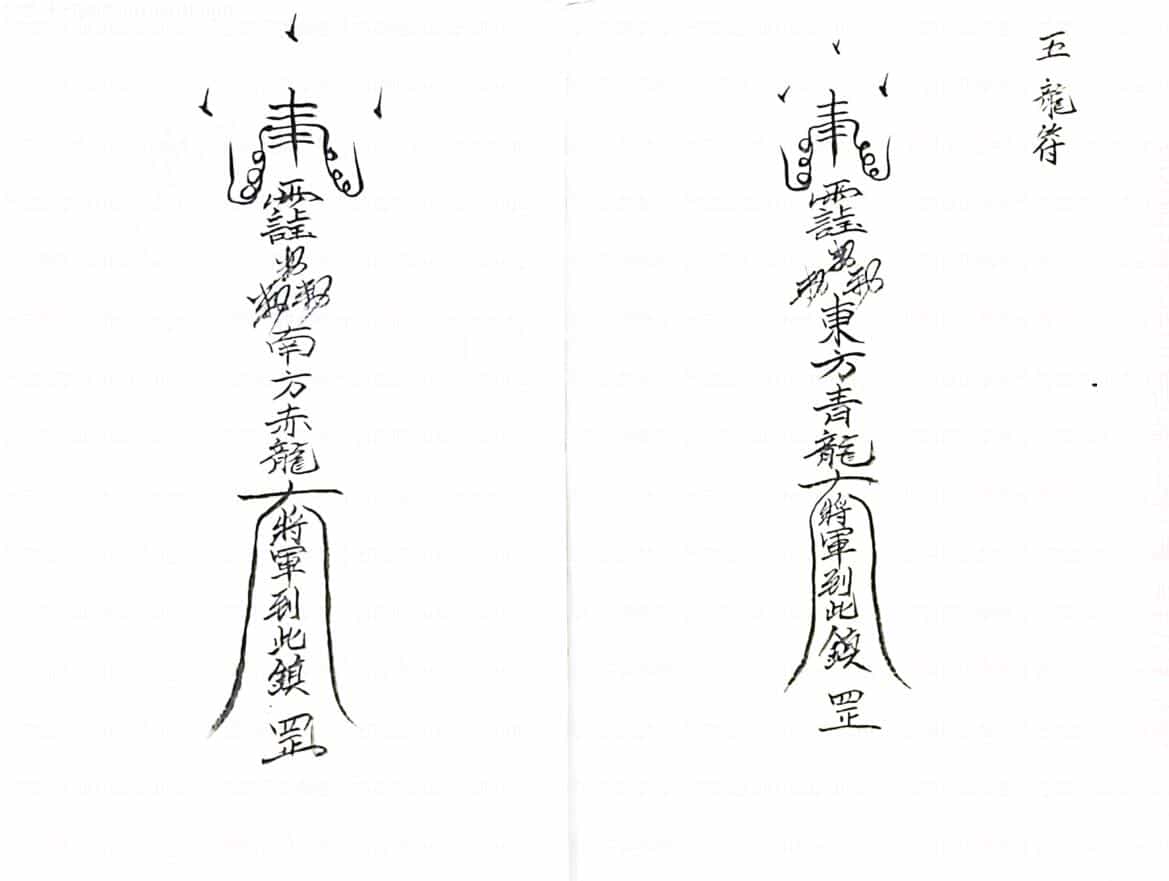 五龍符
奉
東方青龍
將軍到此鎮
罡
奉
南方赤龍
將軍到此鎮
罡